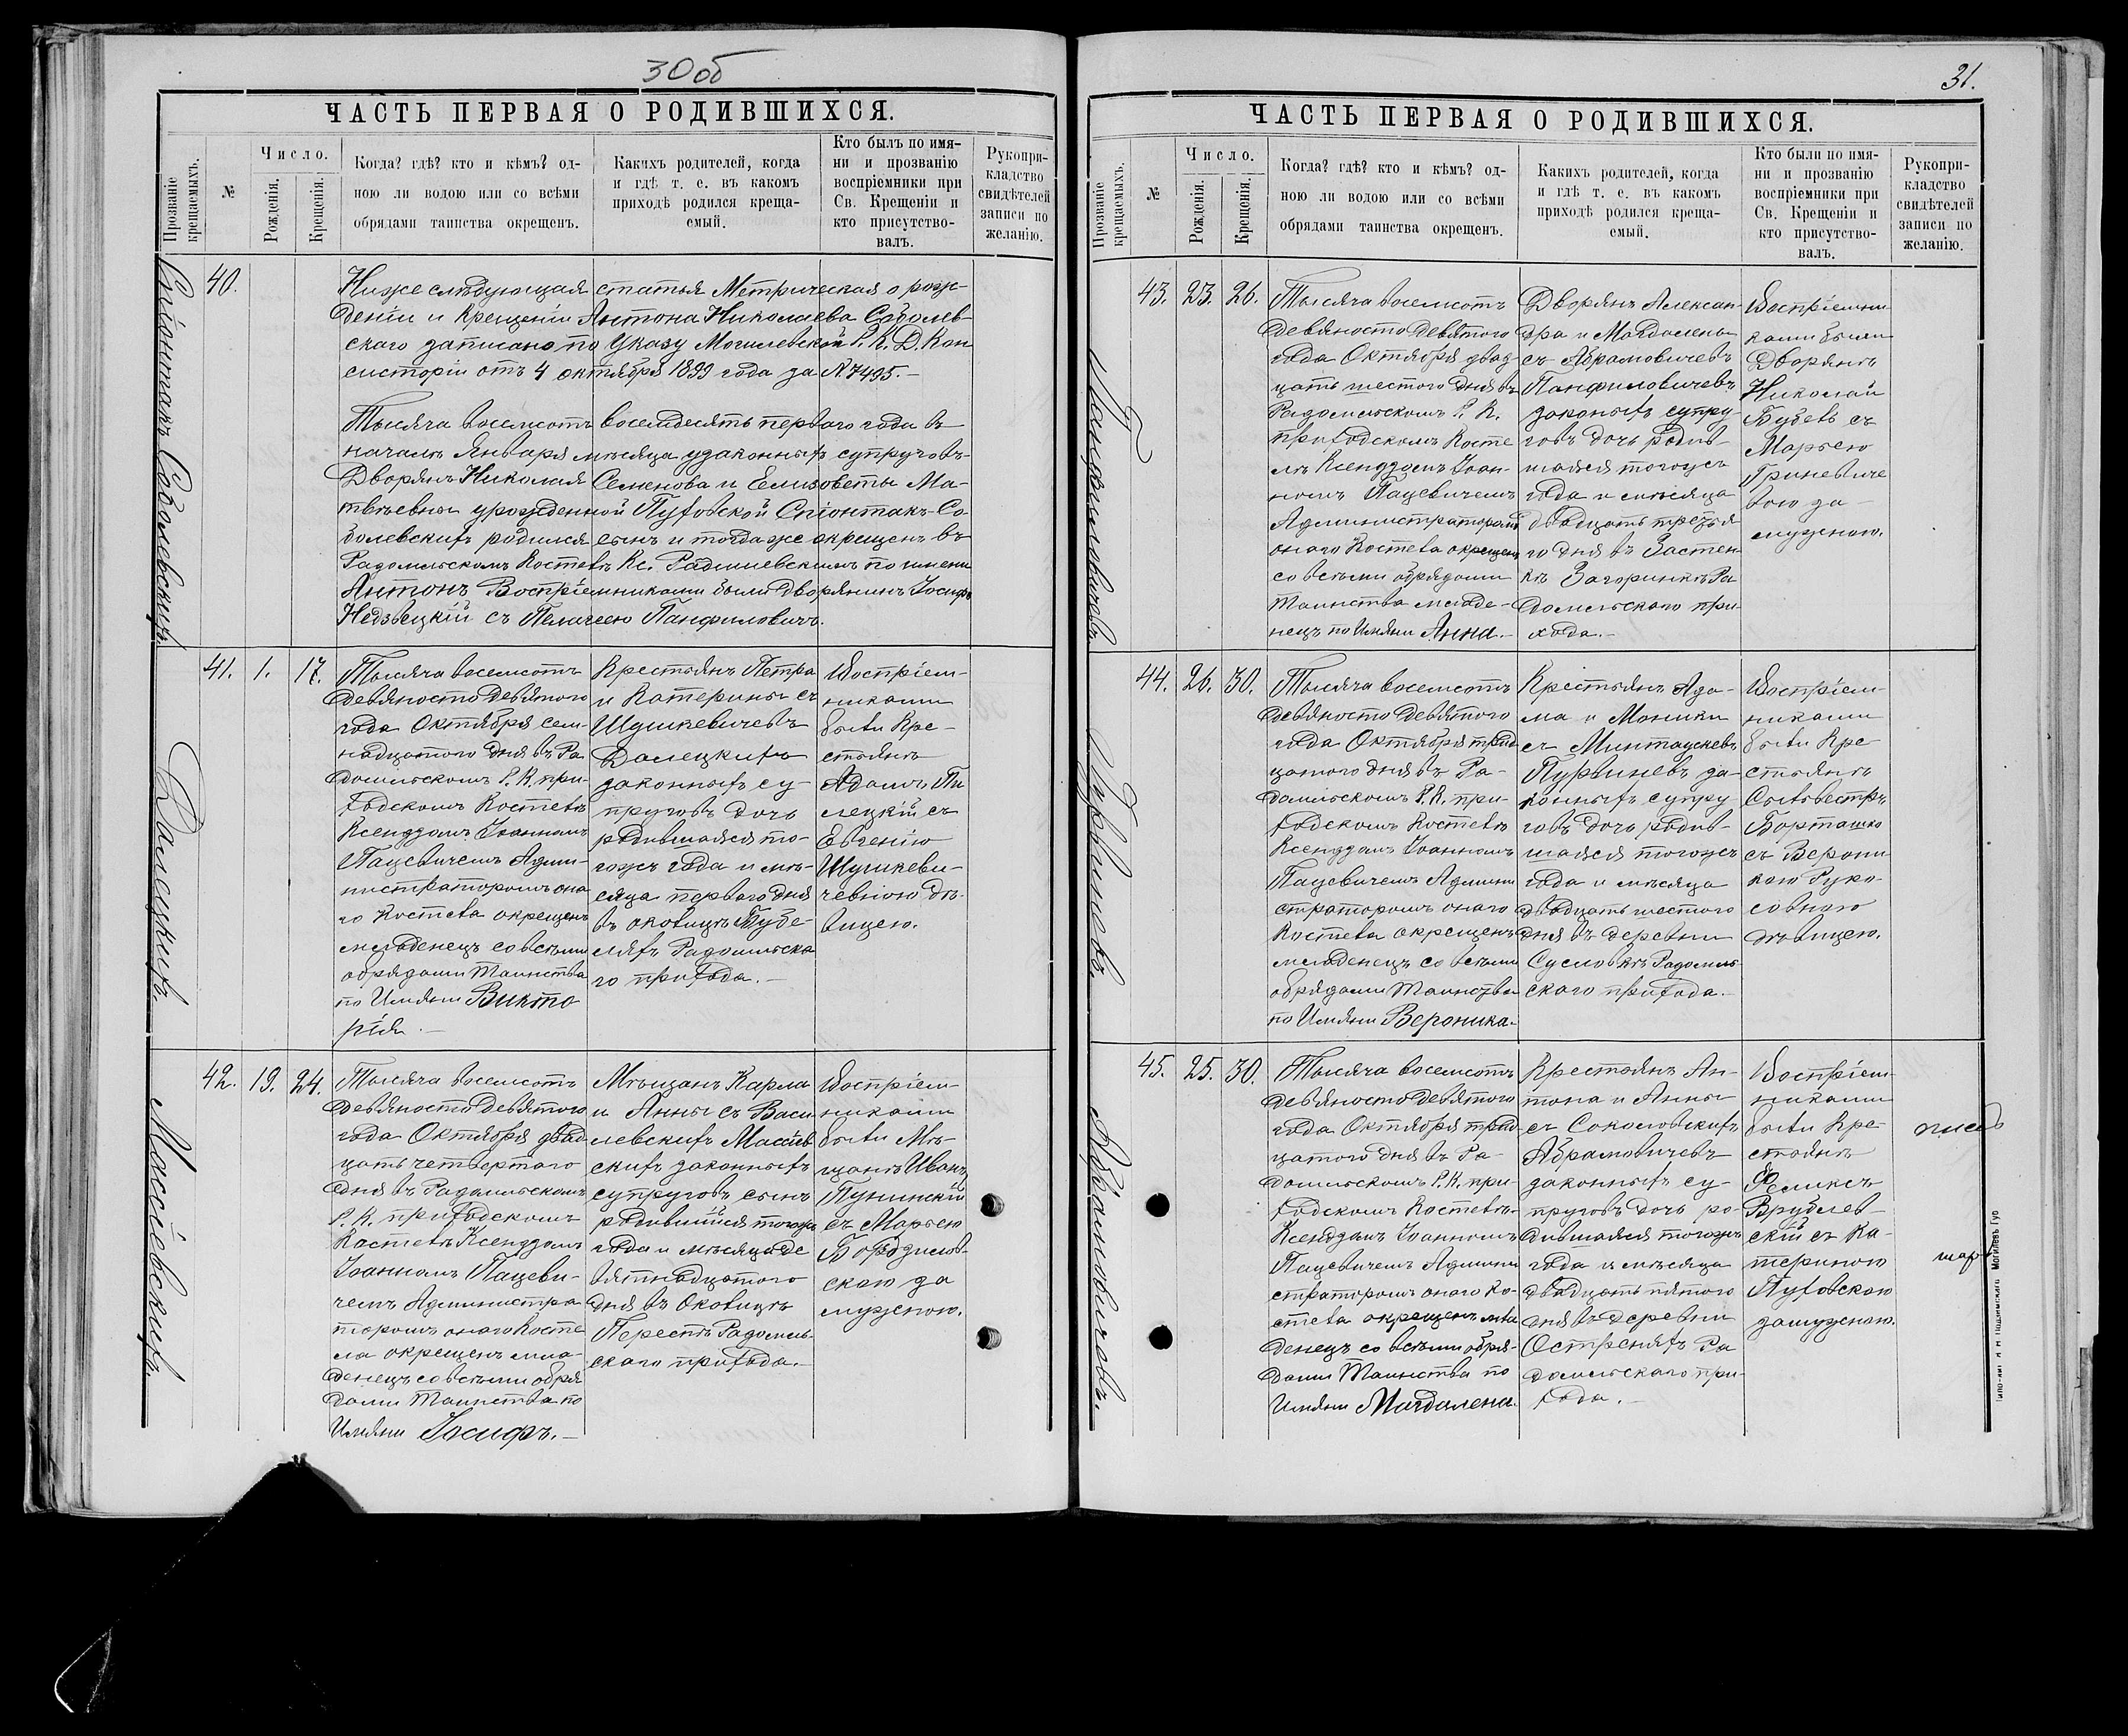 30об
ЧАСТЬ ПЕРВАЯ О РОДИВШИХСЯ.
Прозваніе крещаемыхъ.
№
Число.
Рожденія.
Крещенія.
Когда? гдѣ? кто и кѣмъ? од-
ною ли водою или со всѣми
обрядами таинства окрещенъ.
Какихъ родителей, когда
и гдѣ т. е. въ какомъ
приходѣ родился креща-
емый.
Кто былъ по имя-
ни и прозванію
воспріемники при
Св. Крещеніи и
кто присутство-
валъ.
Рукопри-
кладство
свидѣтелей
записи по
желанію.
Соболевскихъ
40.
Ниже слѣдующая статья Метрическая о рож-
деніи и крещеніи Антона Николаева Соболев-
скаго записана по Указу Могилевской Р. К. Д. Кон
систоріи отъ 4 октября 1899 года за № 7495.—
Тысяча восемсотъ восемдесятъ перваго года въ
началѣ Января мѣсяца узаконныхъ супруговъ
Дворянъ Николая Семенова и Елизаветы Ма-
твѣевны урожденной Пуховской Спіонтакъ-Со-
болевскихъ родился сынъ и тогда же окрещенъ въ
Радомльскомъ Костелѣ Кс. по имени
Антонъ Воспріемниками были дворянинъ Іосифъ
Недзвецкій съ Пелагеею Панфиловичъ.
Далецкихъ.
41. 1. 17.
Тысяча восемсотъ
девяносто девятого
года Октября сем-
надцатого дня въ Ра
домльскомъ Р. К. при-
ходскомъ Костелѣ
Ксендзомъ Іоанномъ
Пацевичемъ Адми-
нистраторомъ она
го Костела окрещенъ
младенецъ со всѣми
обрядами Таинства
по Имяни Викто
рія.—
Крестьянъ Петра
и Катерины съ
Шушкевичевъ
Далецкихъ
законныхъ су-
пруговъ дочь
родившаяся то-
гожъ года и мѣ-
сяца перваго дня
въ околицѣ Буде-
ляхъ Радомльска
го прихода.—
Воспріем-
никами
были Кре-
стьянъ
Адамъ Пи
лецкій съ
Евгеніею
Шушкеви-
чевною дѣ-
вицею.
Масіевскихъ.
42. 19. 24.
Тысяча восемсотъ
девяносто девятого
года Октября двад
цать четвертаго
дня въ Радомльскомъ
Р. К. приходскомъ
Костелѣ Ксендзомъ
Іоанномъ Пацеви-
чемъ Администра
торомъ онаго Косте
ла окрещенъ мла-
денецъ со всѣми обря
дами Таинства по
Имяни Іосифъ.—
Мѣщанъ Карла
и Анны съ Васи
левскихъ Масіев
скихъ законныхъ
супруговъ сынъ
родившійся тогожъ
года и мѣсяца де
вятнадцатого
дня въ Околицѣ
Перестѣ Радомль-
скаго прихода.—
Воспріем-
никами
были Мѣ-
щанъ Иванъ
Тунинскій
съ Марьею
скою за
мужною.
31.
ЧАСТЬ ПЕРВАЯ О РОДИВШИХСЯ.
Прозваніе крещаемыхъ.
№
Число.
Рожденія.
Крещенія.
Когда? гдѣ? кто и кѣмъ? од-
ною ли водою или со всѣми
обрядами таинства окрещенъ.
Какихъ родителей, когда
и гдѣ т. е. въ какомъ
приходѣ родился креща-
емый.
Кто были по имя-
ни и прозванію
воспріемники при
Св. Крещеніи и
кто присутство-
валъ.
Рукопри-
кладство
свидѣтелей
записи по
желанію.
Панфиловичевъ.
43. 23. 26.
Тысяча восемсотъ
девяносто девятого
года Октября двад-
цать шестого дня въ
Радомльскомъ Р. К.
приходскомъ Косте
лѣ Ксендзомъ Іоан-
номъ Пацевичемъ
Администраторомъ
онаго Костела окрещенъ
со всѣми обрядами
Таинства младе-
нецъ по Имяни Анна.—
Дворянъ Алексан-
дра и Магдалены
съ Абрамовичевъ
Панфиловичевъ
законныхъ супру-
говъ дочь родив-
шаяся тогожъ
года и мѣсяца
двадцать третья
го дня въ Застен
кѣ Загоринкѣ Ра
домльскаго при-
хода.—
Воспріемни
ками были
Дворянъ
Николай
съ
Марьею
Гриневиче
вою за-
мужною.
Пурвиневъ.
44. 26. 30.
Тысяча восемсотъ
девяносто девятого
года Октября трид
цатого дня въ Ра-
домльскомъ Р. К. при-
ходскомъ Костелѣ
Ксендзомъ Іоанномъ
Пацевичемъ Админи
страторомъ онаго
Костела окрещенъ
младенецъ со всѣми
обрядами Таинства
по Имяни Вероника.
Крестьянъ Ада-
ма и Моники
съ
Пурвиневъ за-
конныхъ супру-
говъ дочь родив-
шаяся тогожъ
года и мѣсяца
двадцать шестого
дня въ деревни
Сусловкѣ Радомль-
скаго прихода.—
Воспріем-
никами
были Кре
стьянъ
Сильвестръ
Борташко
съ Верони
кою Руко-
совною
дѣвицею.
Абрамовичовъ.
45. 25. 30.
Тысяча восемсотъ
девяносто девятого
года Октября трид-
цатого дня въ Ра-
домльскомъ Р. К. при-
ходскомъ Костелѣ
Ксендзомъ Іоанномъ
Пацевичемъ Админи
страторомъ онаго Ко-
стела окрещенъ мла
денецъ со всѣми обря-
дами Таинства по
Имяни Магдалена.
Крестьянъ Ан-
тона и Анны
съ Соколовскихъ
Абрамовичевъ
законныхъ су-
пруговъ дочь ро-
дившаяся тогожъ
года и мѣсяца
двадцать пятого
дня въ деревни
Острсняхъ Ра
домльскаго при-
хода.—
Воспріем-
никами
были Кре-
стьянъ
Феликсъ
Врублев-
скій съ Ка-
териною
Пуховскою
замужною.